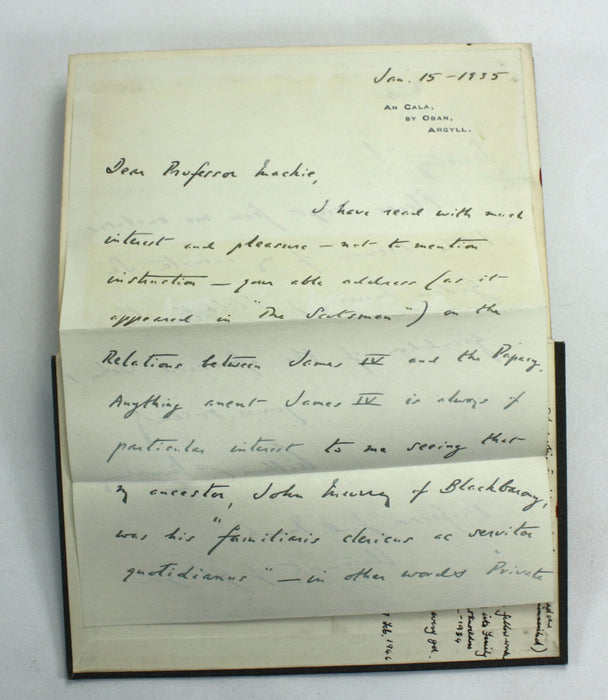 Jan. 15 - 1935
AN CALA,
BY OBAN,
ARGYLL.
Dear Professor Mackie,
I have read with much
interest and pleasure — not to mention
instruction — your able address (as it
appeared in "The Scotsman") on the
Relations between James IV and the Papacy.
Anything anent James IV is always of
particular interest to me seeing that
my ancestor, John Murray of Blackbarony,
was his "familiaris clericus ac servitor
quotidianus" — in other words "Private
fellow
Family
- 1934
Feb. 1946